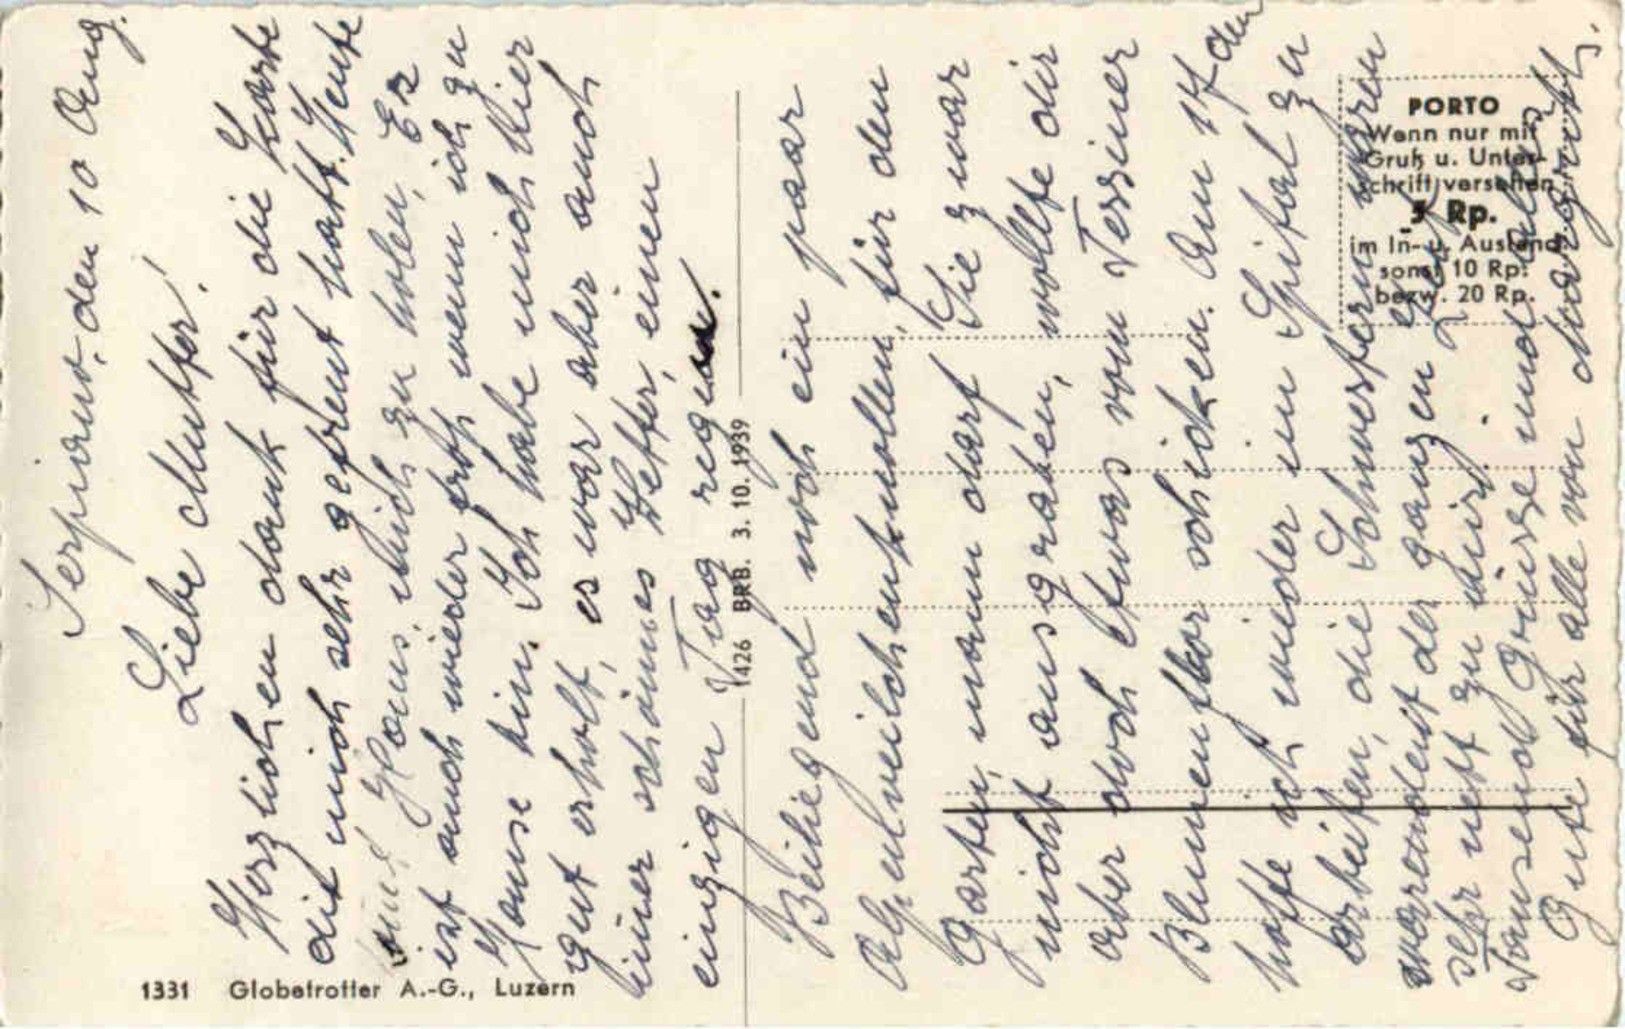 Serpiano, den 10 Aug.
Liebe Mutter!
Herzlichen dank für die Karte
die mich sehr gefreut hatt. Heute
Hans, mich zu holen, Er
ist auch wieder froh wenn ich zu
Hause bin. Ich habe mich hier
gut erholt, es war aber auch
immer schönes Wetter, einen
einzigen Tag regen.
Beiliegend noch ein paar
Alpenveilchenknollen für den
Garten, mann darf Sie zwar
nicht ausgraben, wollte dir
aber doch etwas vom Tessiner
Blumenflor schicken. Am 17 den
hoffe ich wieder im Spital zu
arbeiten, die Schwestern waren
während der ganzen Zeit
sehr nett zu mir.
Tausend Grüsse und alles
Gute für alle von Margrith.
1331 Globetrotter A.-G., Luzern
1426 BRB. 3. 10. 1939
PORTO
Wenn nur mit
Gruß u. Unter-
schrift versehen
5 Rp.
im In- u. Ausland
sonst 10 Rp.
bezw. 20 Rp.